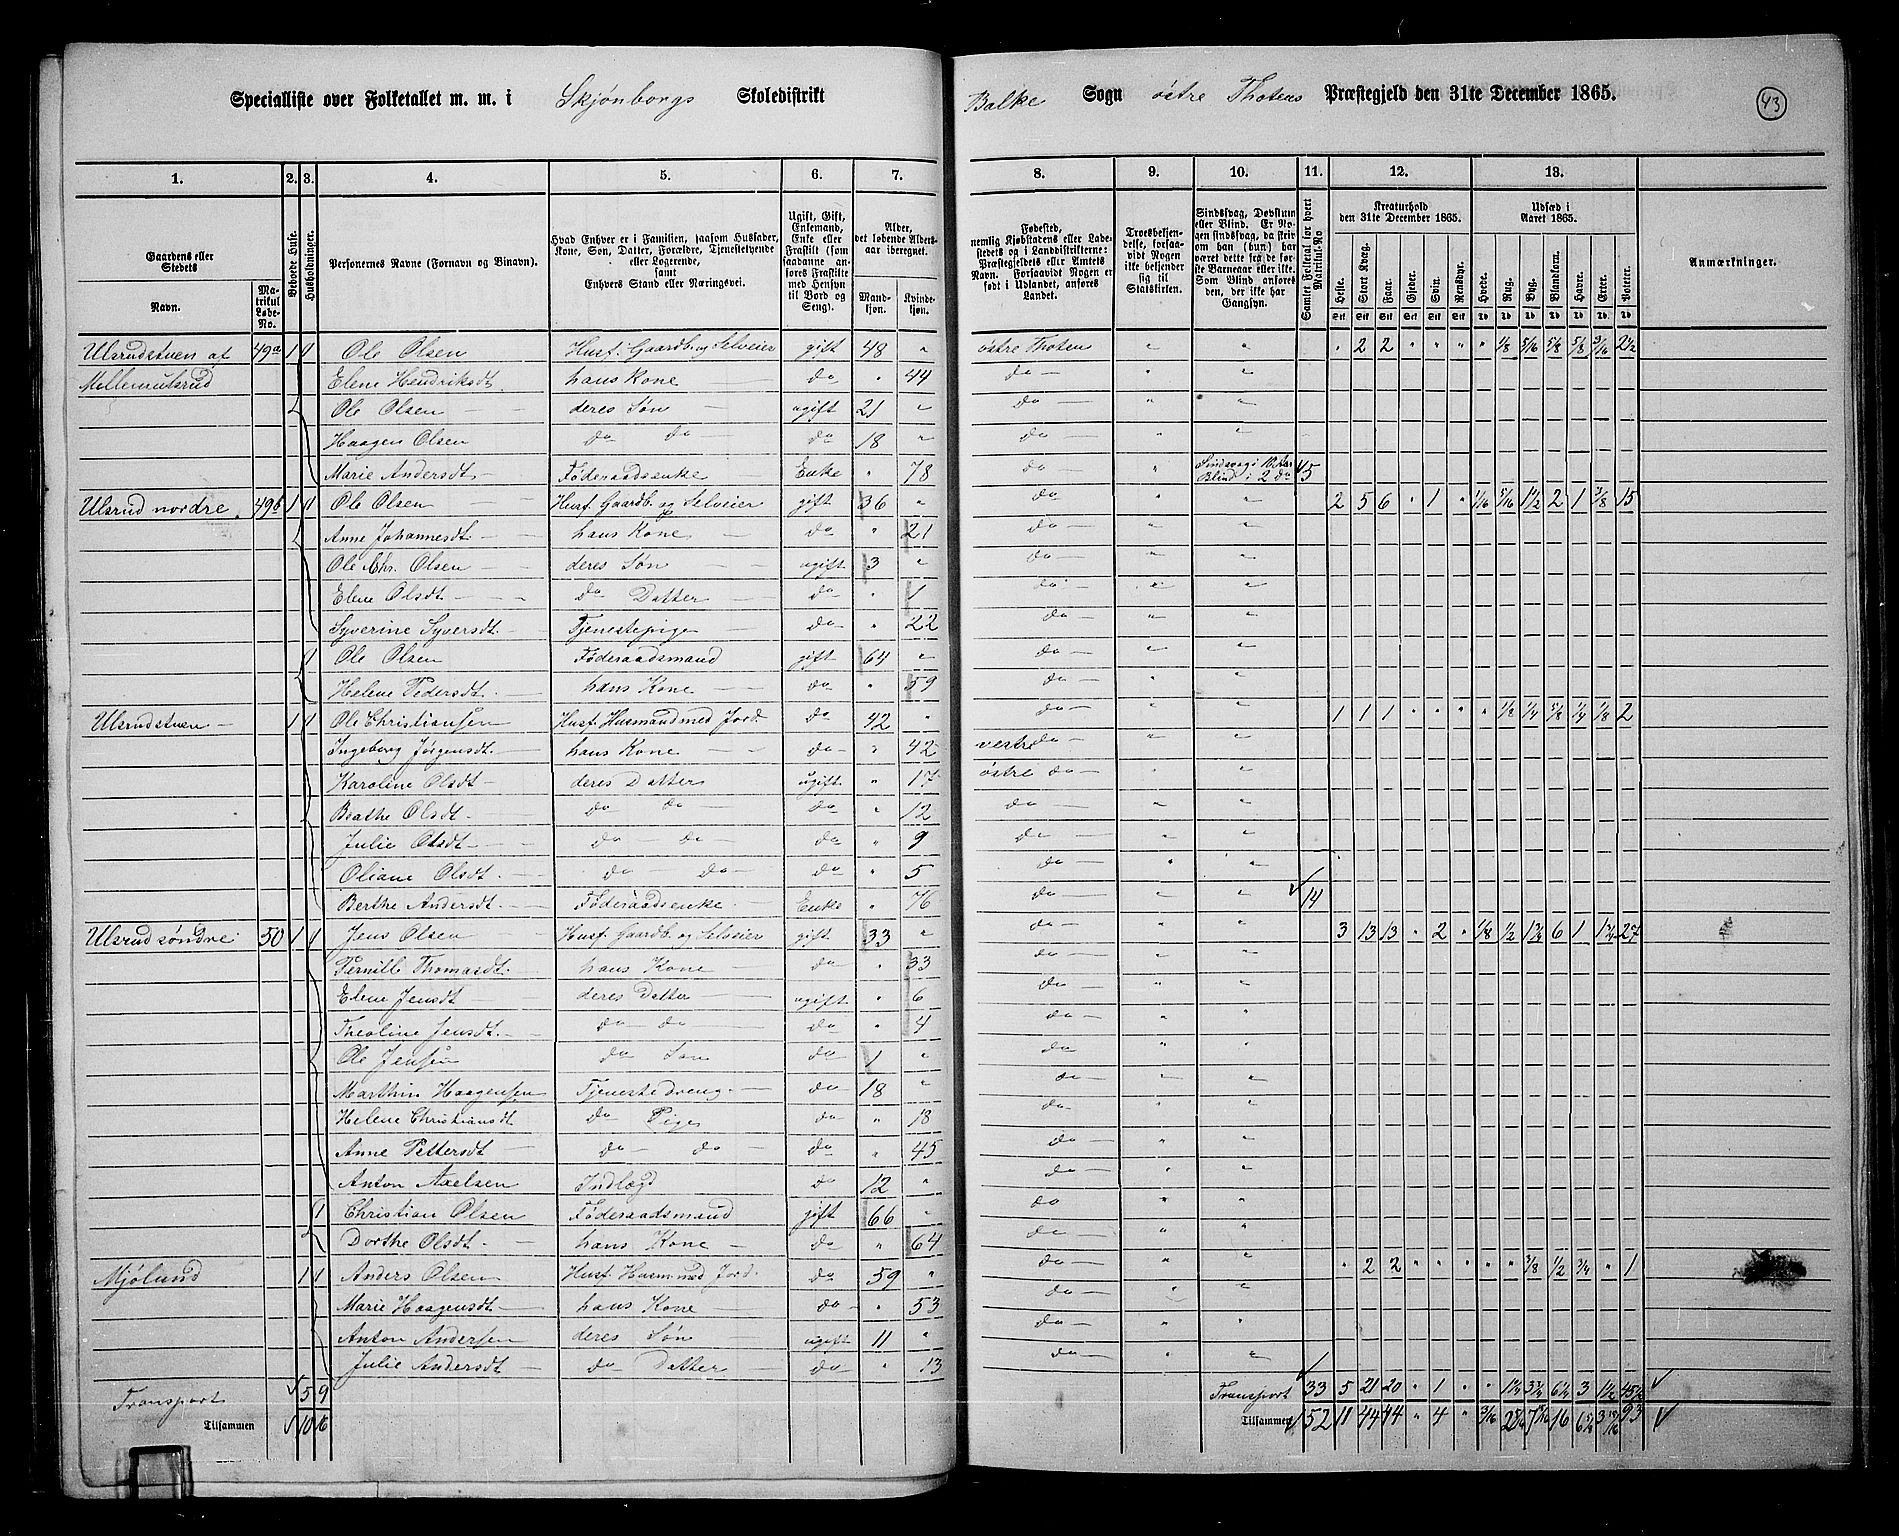 Specialliste over Folketallet m. m. i Skjønborgs Skoledistrikt Balke Sogn østre Thotens Præstegjeld den 31te December 1865. 43
1. 2. 3. 4. 5. 6. 7. 8. 9. 10. 11. 12. 13.
Gaardens eller Stedets
Navn.
Matrikul Løbe-No.
Beboede Huse.
Husholdninger.
Personernes Navne (Fornavn og Binavn).
Hvad Enhver er i Familien, saasom Husfader, Kone, Søn, Datter, Forældre, Tjenestetyende eller Logerende, samt Enhvers Stand eller Næringsvei.
Ugift, Gift, Enkemand, Enke eller Fraskilt (samt saadanne anføres Fraskilte med Hensyn til Bord og Seng).
Alder, det løbende Aldersaar iberegnet.
Mandkjøn. Kvindekjøn.
Fødested, nemlig Kjøbstadens eller Ladestedets og i Landdistrikterne: Præstegjeldets eller Amtets Navn. Forsaavidt Nogen er født i Udlandet, anføres Landet.
Troesbekjendelse, forsaavidt Nogen ikke bekjender sig til Statskirken.
Sindssvag, Døvstum eller Blind. Er Nogen sindssvag, da skrives om han (hun) har været dette fra de første Barneaar eller ikke. Som Blind anføres den, der ikke har Gangsyn.
Samlet Folketal for hvert Matrikul-No
Kreaturhold den 31te December 1865.
Heste. Stort Kvæg. Faar. Gjeder. Svin. Rensdyr.
Udsæd i Aaret 1865.
Hvede. Rug. Byg. Blandkorn. Havre. Erter. Poteter.
Anmærkninger.
Ulsrudstuen af 49a 1 1 Ole Olsen Husf. Gaardb. og Selveier gift 48 " østre Thoten " " " 2 2 " " " " 1/8 5/16 5/8 5/8 3/16 2 1/2
Mellemulsrud Elene Hendriksdt. hans Kone do " 44 do " "
Ole Olsen deres Søn ugift 21 " do " "
Haagen Olsen do do do 18 " do " "
Marie Andersdt. Føderaadsenke Enke " 78 do " Sindsvag i 10 Aar Blind i 2 do 5
Ulsrud nordre 49b 1 1 Ole Olsen Husf. Gaardb. og Selveier gift 36 " do " " 2 5 6 " 1 " 1/16 5/16 1 1/2 2 1 3/8 15
Anne Johannesdt. hans Kone do " 21 do " "
Ole Chr. Olsen deres Søn ugift 3 " do " "
Elene Olsdt do Datter do " 1 do " "
Syverine Syversdt. Tjenestepige do " 22 do " "
1 Ole Olsen Føderaadsmand gift 64 " do " "
Helene Pedersdt. hans Kone do " 59 do " "
Ulsrudstuen 1 1 Ole Christiansen Husf. Husmand med Jord. do 42 " do " " 1 1 1 " " " " 1/8 1/4 5/8 1/4 1/8 2
Ingeborg Jørgensdt. hans Kone do " 42 vestre do " "
Karoline Olsdt deres Datter ugift " 17 østre do " "
Beathe Olsdt do do do " 12 do " "
Julie Olsdt do do do " 9 do " "
Oliane Olsdt. do do do " 5 do " "
Berthe Andersdt. Føderaadsenke. Enke " 76 do " " 14
Ulsrud søndre 50 1 1 Jens Olsen Husf. Gaardb. og Selveier gift 33 " do " " 3 13 13 " 2 " 1/8 1/2 1 3/4 6 1 1 1/4 27
Pernille Thomasdt. hans Kone do " 33 do " "
Elene Jensdt deres Datter ugift " 6 do " "
Theoline Jensdt. do do do " 4 do " "
Ole Jensen do Søn do 1 " do " "
Marthin Haagensen Tjenestedreng do 18 " do " "
Helene Christiansdt do Pige do " 18 do " "
Anne Pettersdt do do do " 45 do " "
Anton Axelsen Indlagd do 12 " do " "
1 Christian Olsen Føderaadsmand gift 66 " do " "
Dorthe Olsdt. hans Kone do " 64 do " "
Mjølund 1 1 Anders Olsen Husf. Husm. med Jord. do 59 " do " " " 2 2 " " " " " 3/8 1/2 3/4 " 1
Marie Haagensdt hans Kone do " 53 do " "
Anton Andersen deres Søn ugift 11 " do " "
Julie Andersdt do Datter do " 13 do " "
Transport 5 9 Transport 33 5 21 20 " 1 " " 1 3/4 3 3/4 6 1/4 3 1 1/2 45 1/2
Tilsammen 10 16 Tilsammen 52 11 44 44 " 4 " 3/16 16 93